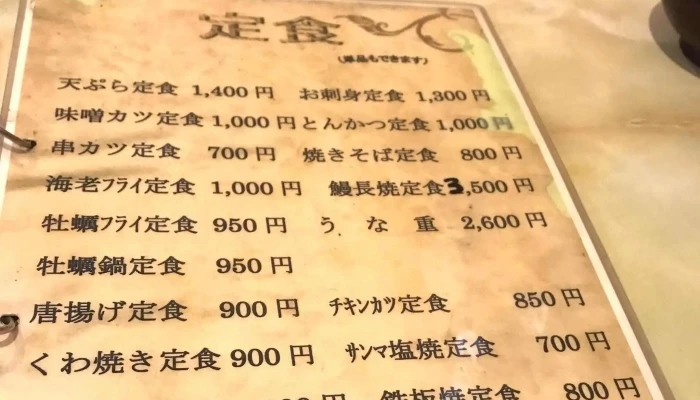 定食
(単品もできます)
天ぷら定食 1,400 円 お刺身定食 1,300 円
味噌カツ定食 1,000 円 とんかつ定食 1,000 円
串カツ定食 700 円 焼きそば定食 800 円
海老フライ定食 1,000 円 鰻長焼定食 3,500 円
牡蠣フライ定食 950 円 う な 重 2,600 円
牡蠣鍋定食 950 円
唐揚げ定食 900 円 チキンカツ定食 850 円
くわ焼き定食 900 円 サンマ塩焼定食 700 円
円 鉄板焼定食 800 円